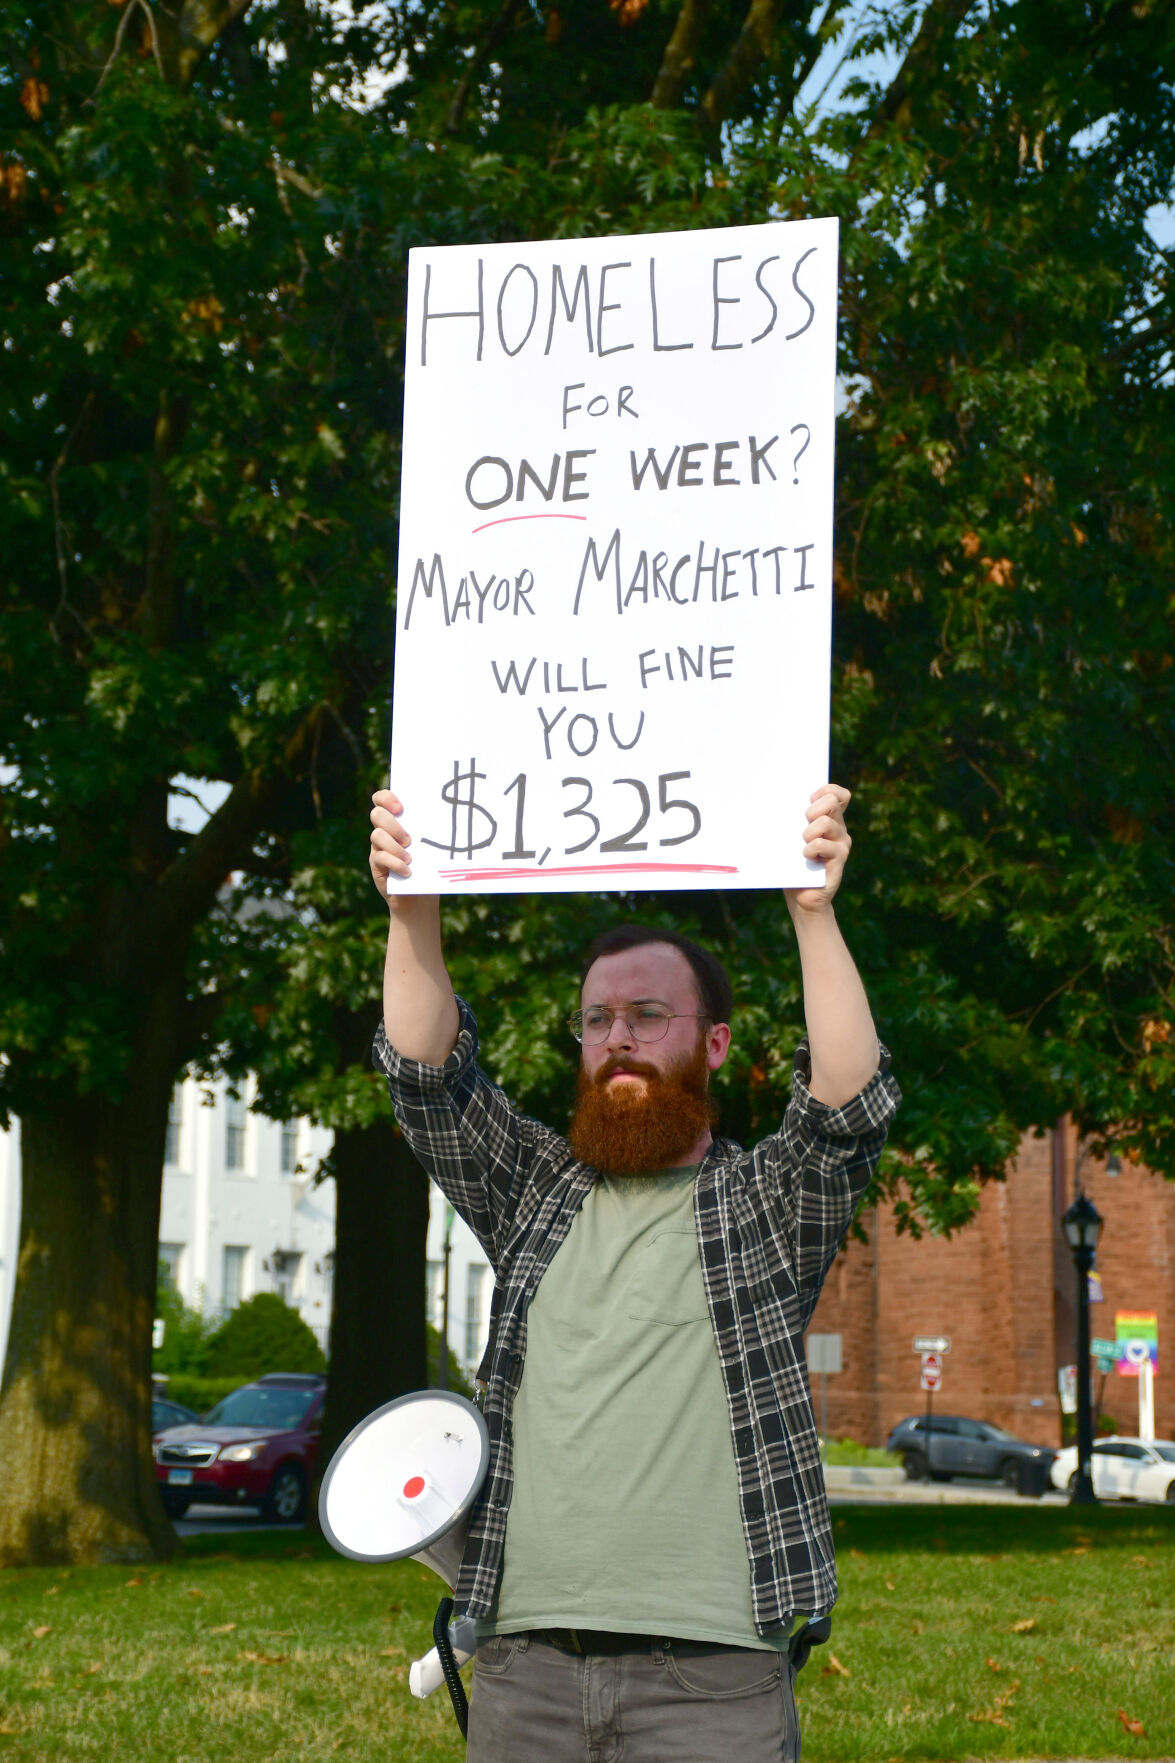 HOMELESS
FOR
ONE WEEK?
MAYOR MARCHETTI
WILL FINE
YOU
$1,325